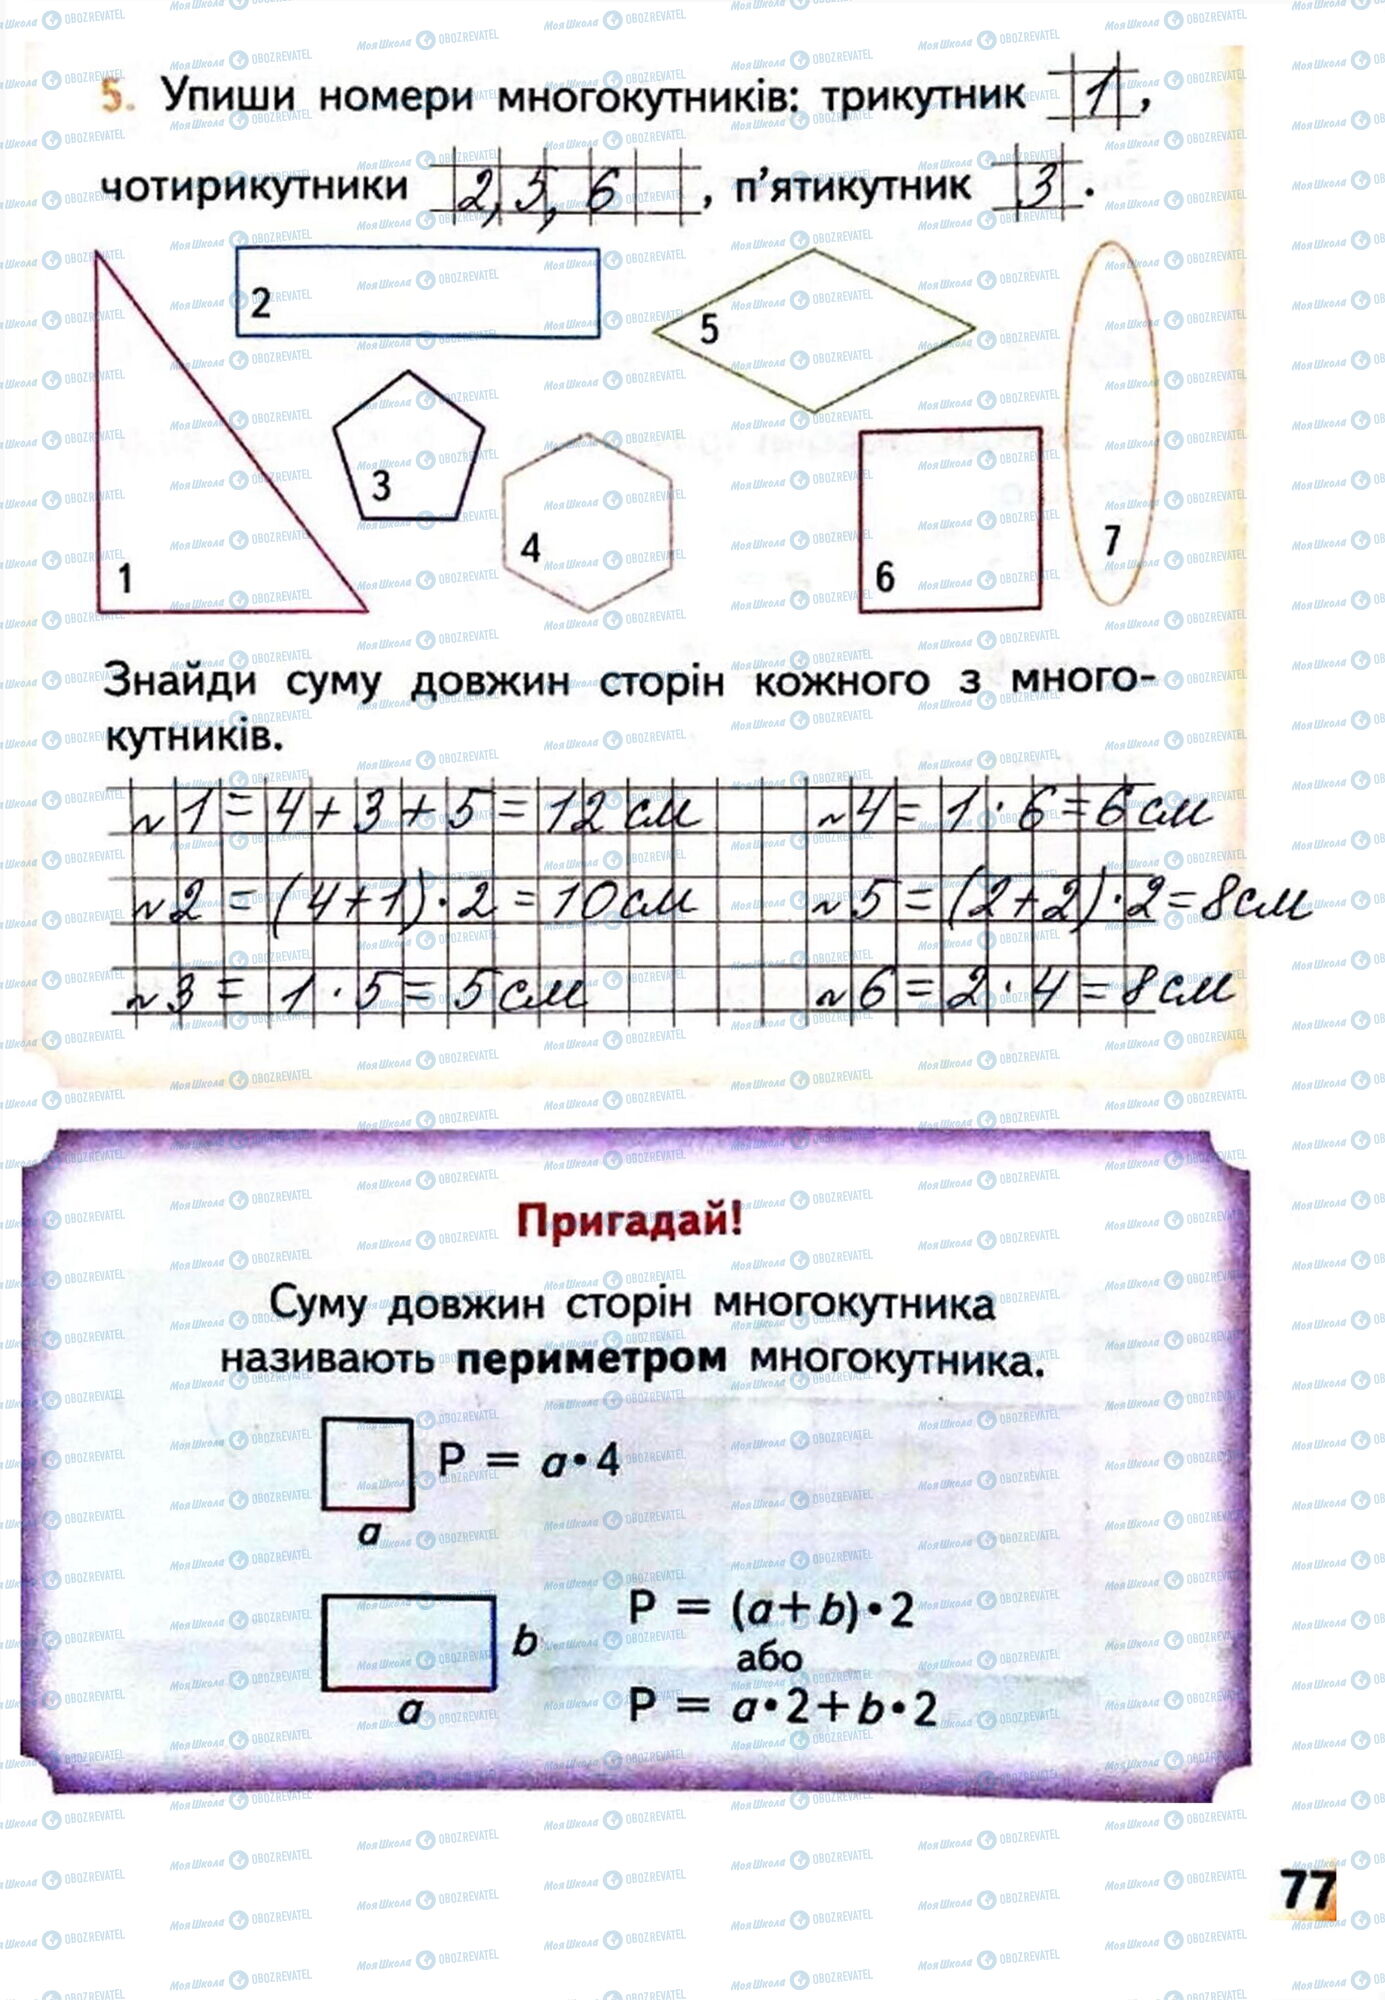 5. Упиши номери многокутників: трикутник 1,
чотирикутники 2, 5, 6, п'ятикутник 3.
2
5
3
4
7
1
6
Знайди суму довжин сторін кожного з много-
кутників.
№1 = 4 + 3 + 5 = 12 см
№4 = 1 · 6 = 6 см
№2 = (4 + 1) · 2 = 10 см
№5 = (2 + 2) · 2 = 8 см
№3 = 1 · 5 = 5 см
№6 = 2 · 4 = 8 см
Пригадай!
Суму довжин сторін многокутника
називають периметром многокутника.
P = a·4
a
b
P = (a+b)·2
або
P = a·2+b·2
a
77
МояШкола OBOZREVATEL